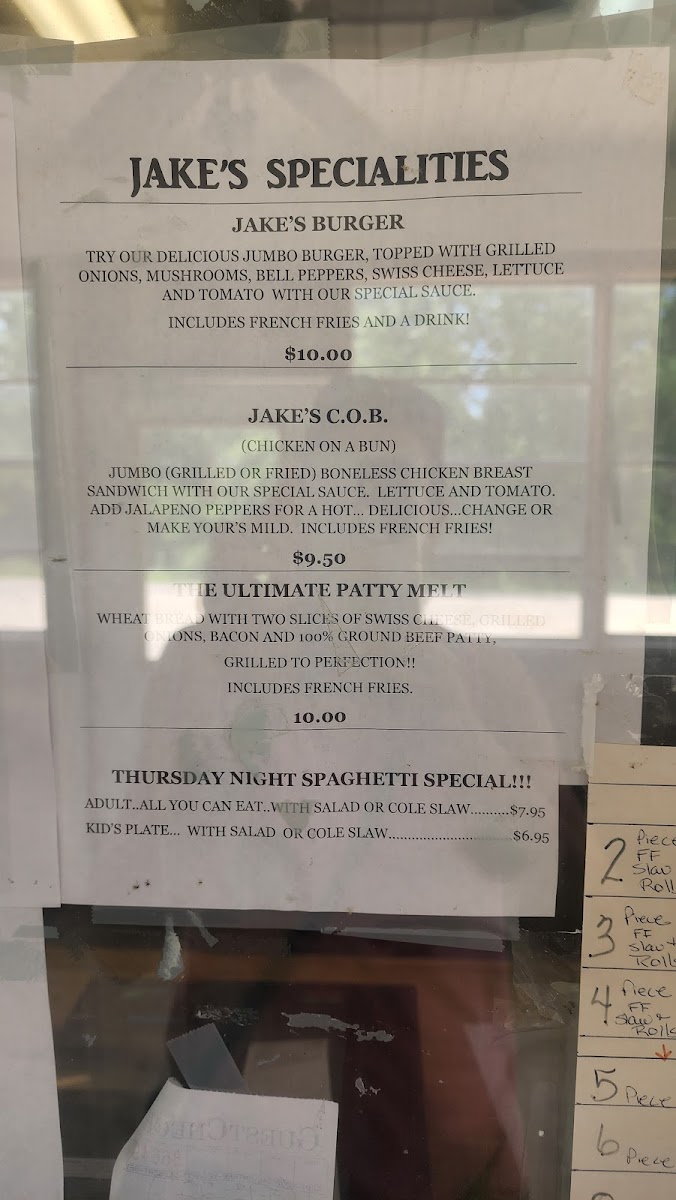 JAKE'S SPECIALITIES
JAKE'S BURGER
TRY OUR DELICIOUS JUMBO BURGER, TOPPED WITH GRILLED
ONIONS, MUSHROOMS, BELL PEPPERS, SWISS CHEESE, LETTUCE
AND TOMATO WITH OUR SPECIAL SAUCE.
INCLUDES FRENCH FRIES AND A DRINK!
$10.00
JAKE'S C.O.B.
(CHICKEN ON A BUN)
JUMBO (GRILLED OR FRIED) BONELESS CHICKEN BREAST
SANDWICH WITH OUR SPECIAL SAUCE. LETTUCE AND TOMATO.
ADD JALAPENO PEPPERS FOR A HOT... DELICIOUS...CHANGE OR
MAKE YOUR'S MILD. INCLUDES FRENCH FRIES!
$9.50
THE ULTIMATE PATTY MELT
WHEAT BREAD WITH TWO SLICES OF SWISS CHEESE, GRILLED
ONIONS, BACON AND 100% GROUND BEEF PATTY,
GRILLED TO PERFECTION!!
INCLUDES FRENCH FRIES.
10.00
THURSDAY NIGHT SPAGHETTI SPECIAL!!!
ADULT..ALL YOU CAN EAT..WITH SALAD OR COLE SLAW..........$7.95
KID'S PLATE... WITH SALAD OR COLE SLAW..............................$6.95
2 Piece
FF
Slaw
Roll
3 Piece
FF
Slaw +
Rolls
4 Piece
FF
Slaw &
Rolls
5 Piece
6 Piece
GUESTCHECK